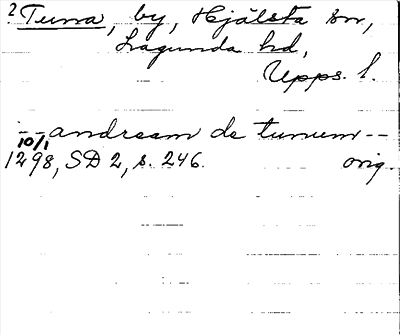 2 Tuna, by, Hjälsta sn,
Lagunda hd,
Upps. l.
-- andream de tunum --
10/1
1298, SD 2, s. 246. orig.